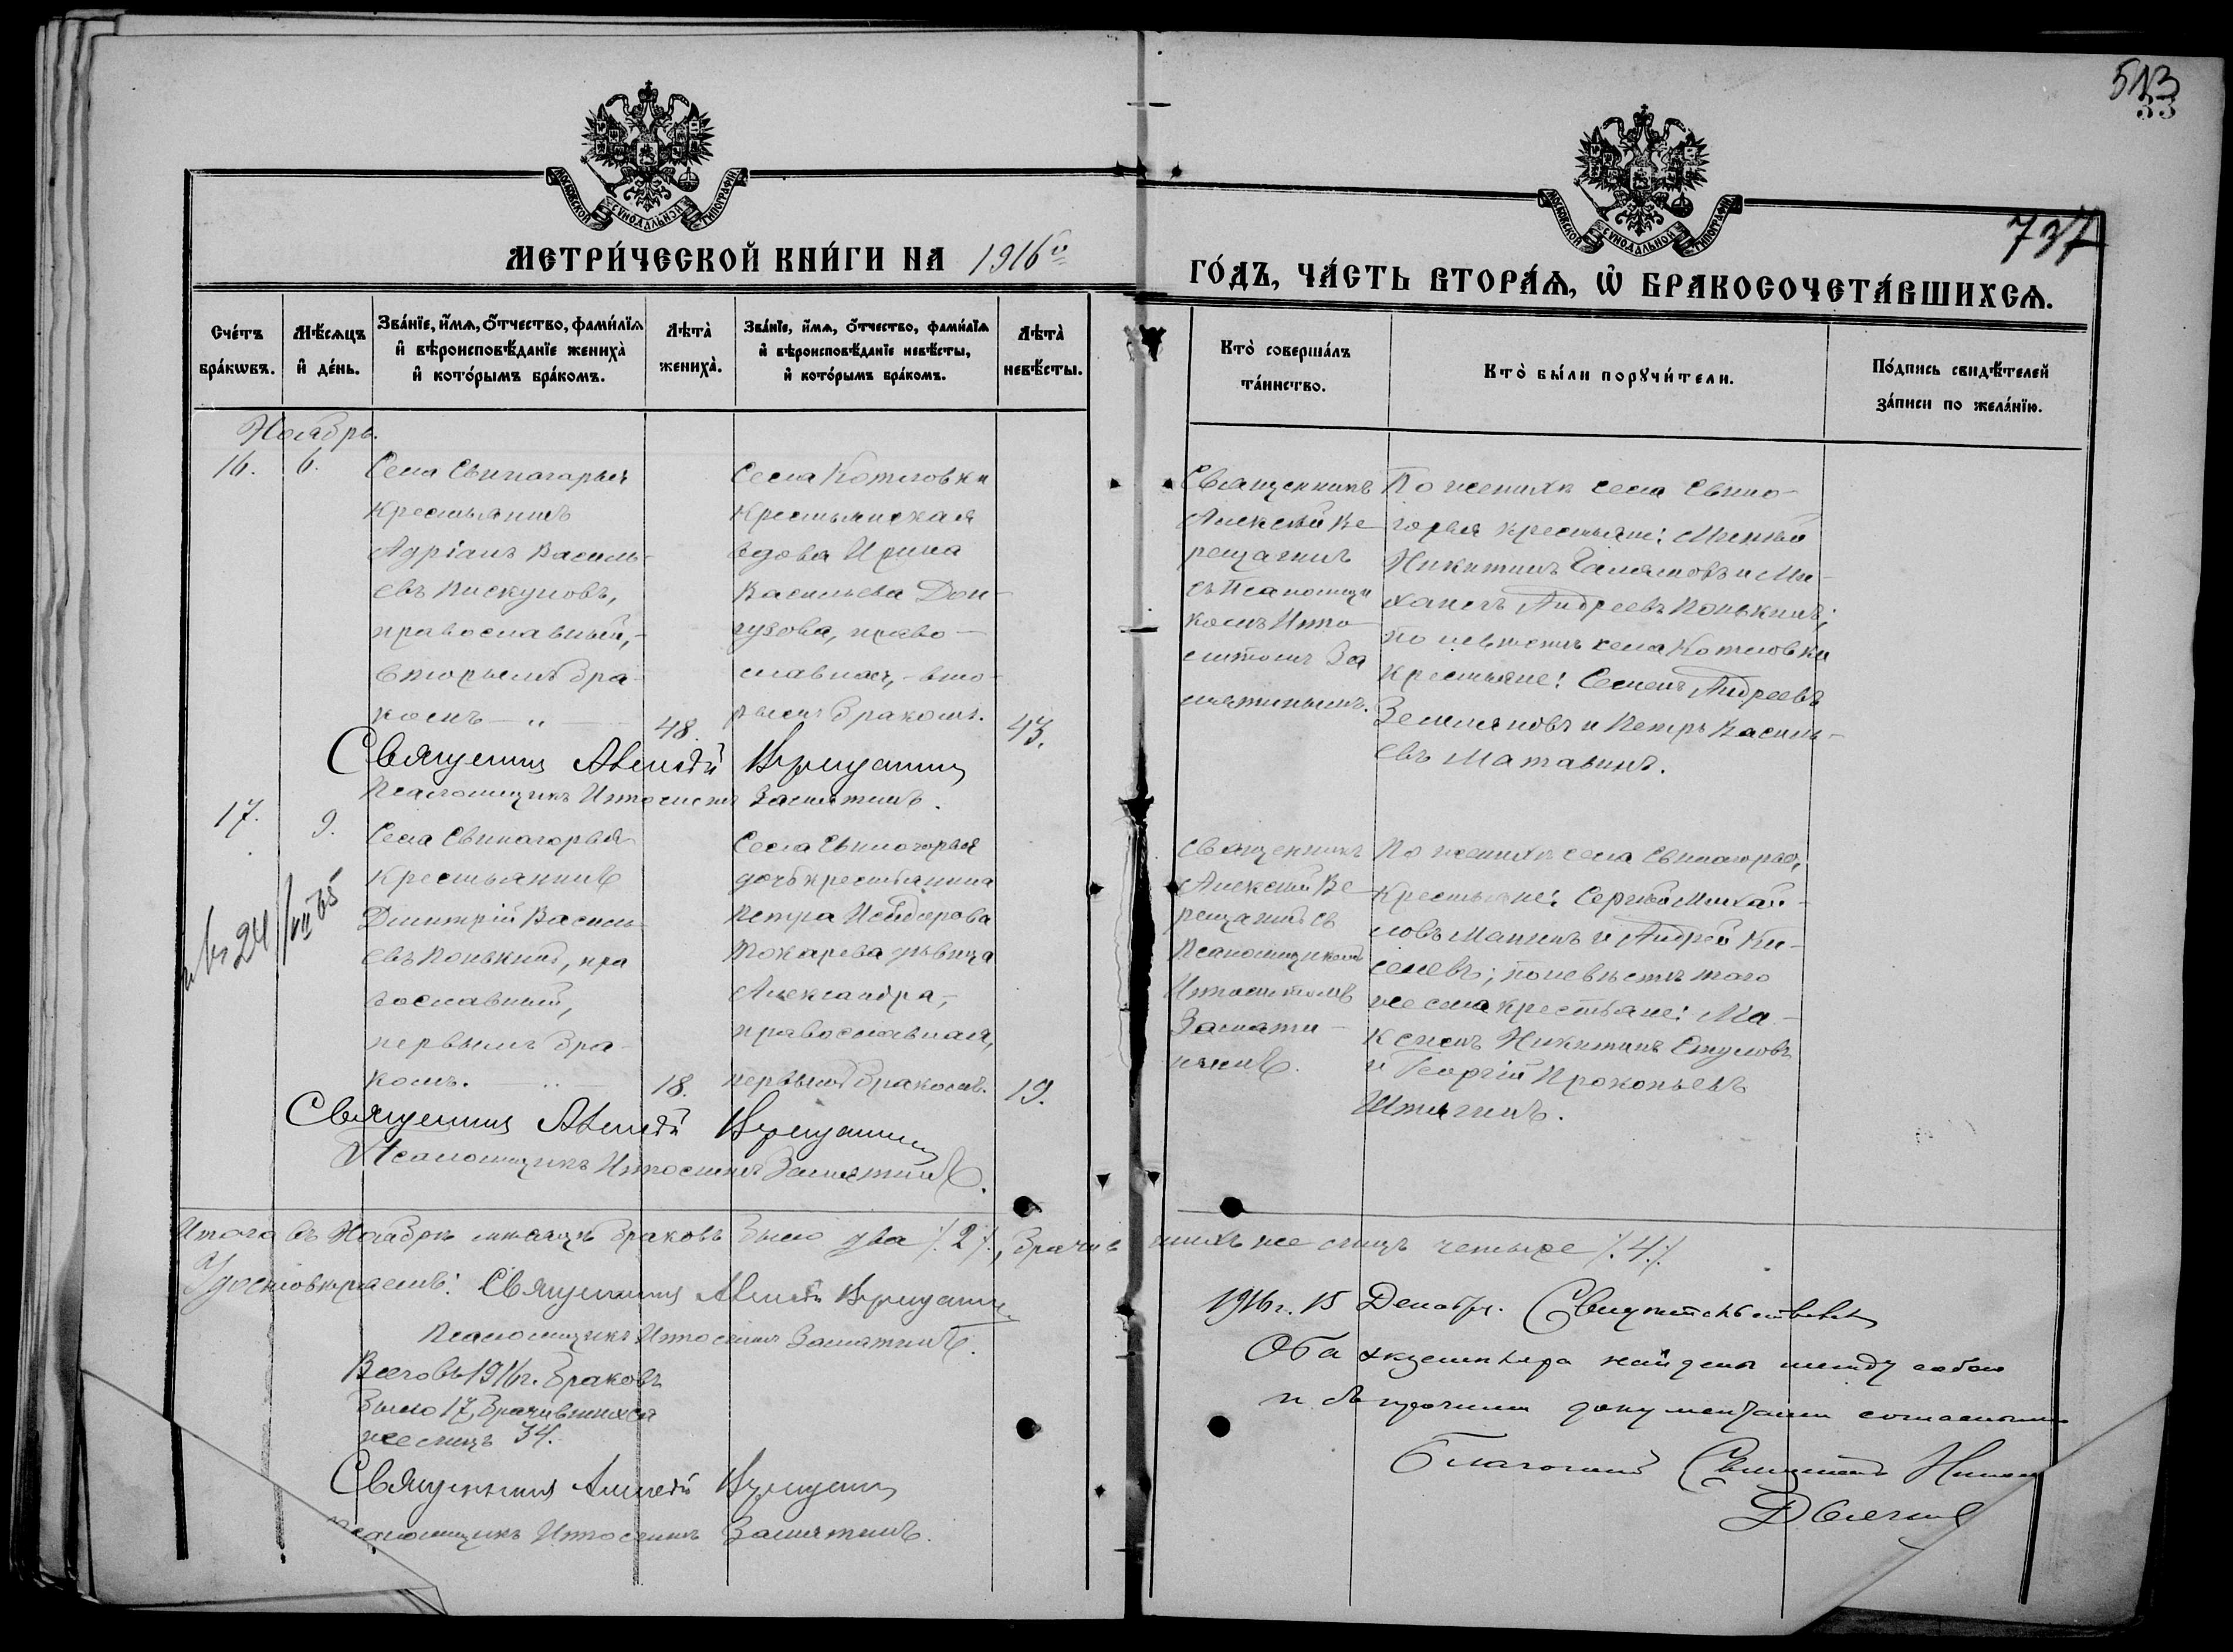 513
33
737
МОСКОВСКОЙ СѴНОДАЛЬНОЙ ТИПОГРАФІИ
МОСКОВСКОЙ СѴНОДАЛЬНОЙ ТИПОГРАФІИ
МЕТРИ́ЧЕСКОЙ КНИ́ГИ НА 1916й
ГО́ДЪ, ЧА́СТЬ ВТОРА́Ѧ, Ѡ БРАКОСОЧЕТА́ВШИХСѦ.
Сче́тъ бра́кѡвъ.
Мѣ́сѧцъ и де́нь.
Зва́нїе, и́мѧ, о́тчество, фами́лїѧ и вѣроисповѣ́данїе жениха̀ и кото́рымъ бра́комъ.
Лѣта̀ жениха̀.
Зва́нїе, и́мѧ, о́тчество, фами́лїѧ и вѣроисповѣ́данїе невѣ́сты, и кото́рымъ бра́комъ.
Лѣта̀ невѣ́сты.
Кто̀ соверша́лъ та́инство.
Кто̀ бы́ли порꙋчи́тели.
По́дпись свидѣ́телей за́писи по жела́нїю.
Ноябрь.
16.
6.
Села Свиногорья
крестьянинъ
Адріанъ Василь-
евъ Пискуновъ,
православный,-
вторымъ бра-
комъ - " -
48.
Села Котловки
крестьянская
вдова Ирина
Васильева Дон-
гузова, право-
славная, - вто-
рымъ бракомъ.
43.
Священникъ
Алексѣй Ве
рещагинъ
съ Псаломщи
комъ Иппо
литомъ За
мятинымъ.
По женихѣ села Свино-
горья крестьяне:
Никитинъ и Ми-
хаилъ Андреевъ Понькинъ;
по невѣстѣ села Котловки
крестьяне: Семенъ Андреевъ
Земляновъ и Петръ Василь-
евъ Маталинъ.
Священникъ Алексѣй Верещагинъ
Псаломщикъ Ипполитъ Замятинъ.
17.
9.
24/VII 65
Села Свиногорья
крестьянинъ
Дмитрій Василь-
евъ Понькинъ, пра
вославный,
первымъ бра-
комъ.
18.
Села Свиногорья
дочь крестьянина
Петра Исидорова
Токарева дѣвица
Александра,-
православная,
первымъ бракомъ.
19.
Священникъ
Алексѣй Ве
рещагинъ съ
Псаломщикомъ
Ипполитомъ
Замяти-
нымъ.
По женихѣ села Свиногорья,
крестьяне: Сергѣй Михай-
ловъ и Андрей Ки-
селевъ; по невѣстѣ того
же села крестьяне: Ма-
ксимъ Никитинъ
и Георгій Прокопьевъ
Священникъ Алексѣй Верещагинъ
Псаломщикъ Ипполитъ Замятинъ.
Итого въ Ноябрѣ мѣсяцѣ браковъ было два /:2:/, брачив
шихъ же лицъ четыре /:4:/
Удостовѣряемъ: Священникъ Алексѣй Верещагинъ
Псаломщикъ Ипполитъ Замятинъ.
Всего въ 1916 г. браковъ
было 17, брачившихся
же лицъ 34.
Священникъ Алексѣй Верещагинъ
Псаломщикъ Ипполитъ Замятинъ.
1916 г. 15 Декабря. Свидѣтельствовалъ
Оба экземпляра найдены между собою
и съ прочими документами согласными
Священникъ